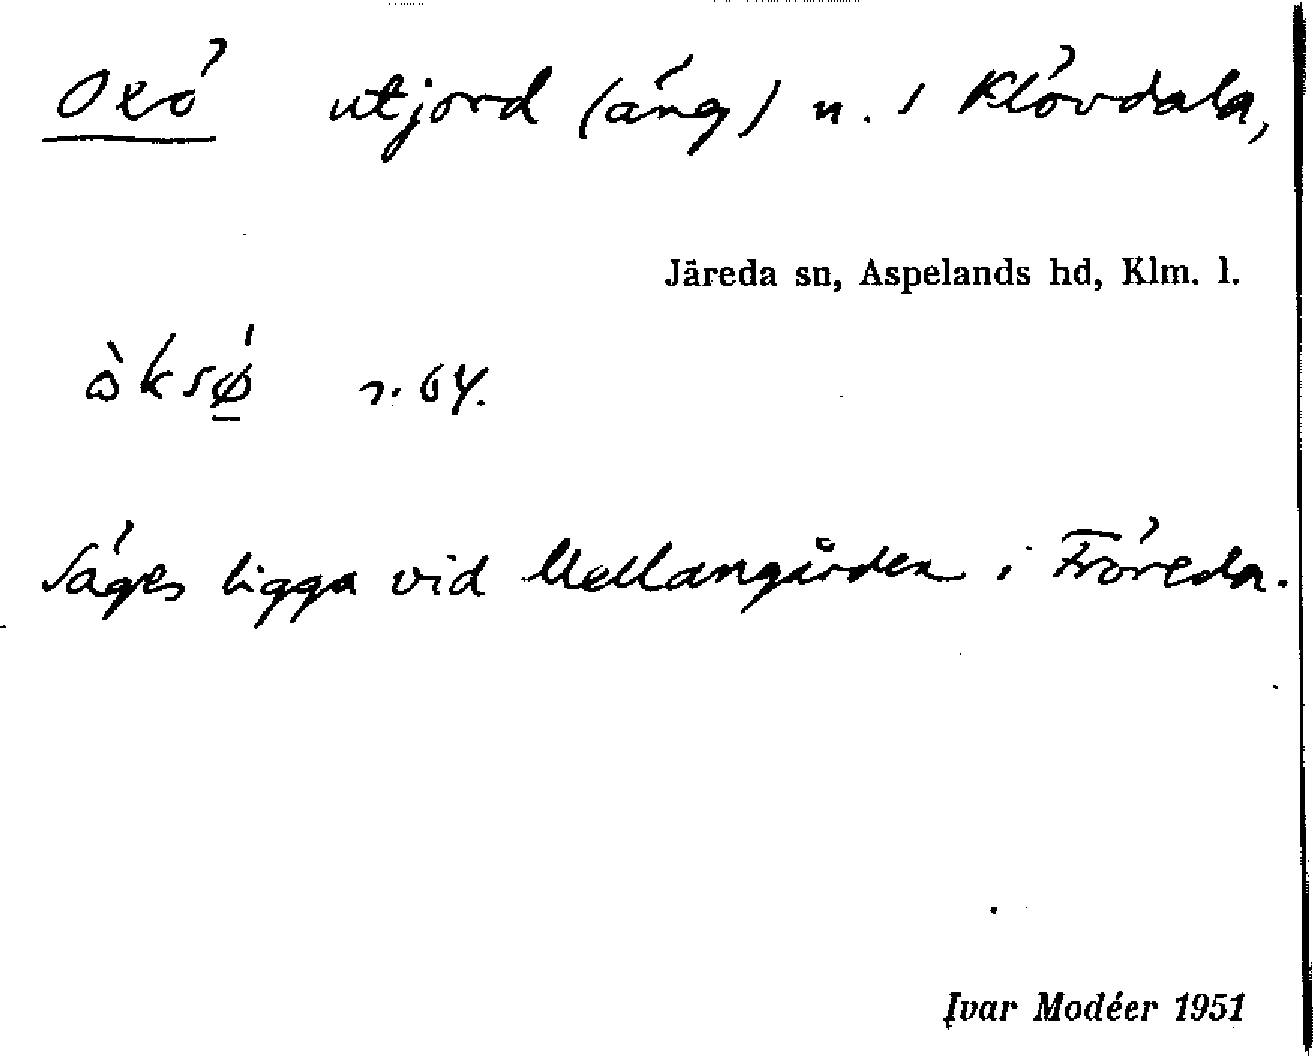 Oxö utjord (äng) n. i Klövdala,
Järeda sn, Aspelands hd, Klm. l.
òksǿ̱ r. 64.
Säges ligga vid Mellangården i Fröreda.
Ivar Modéer 1951